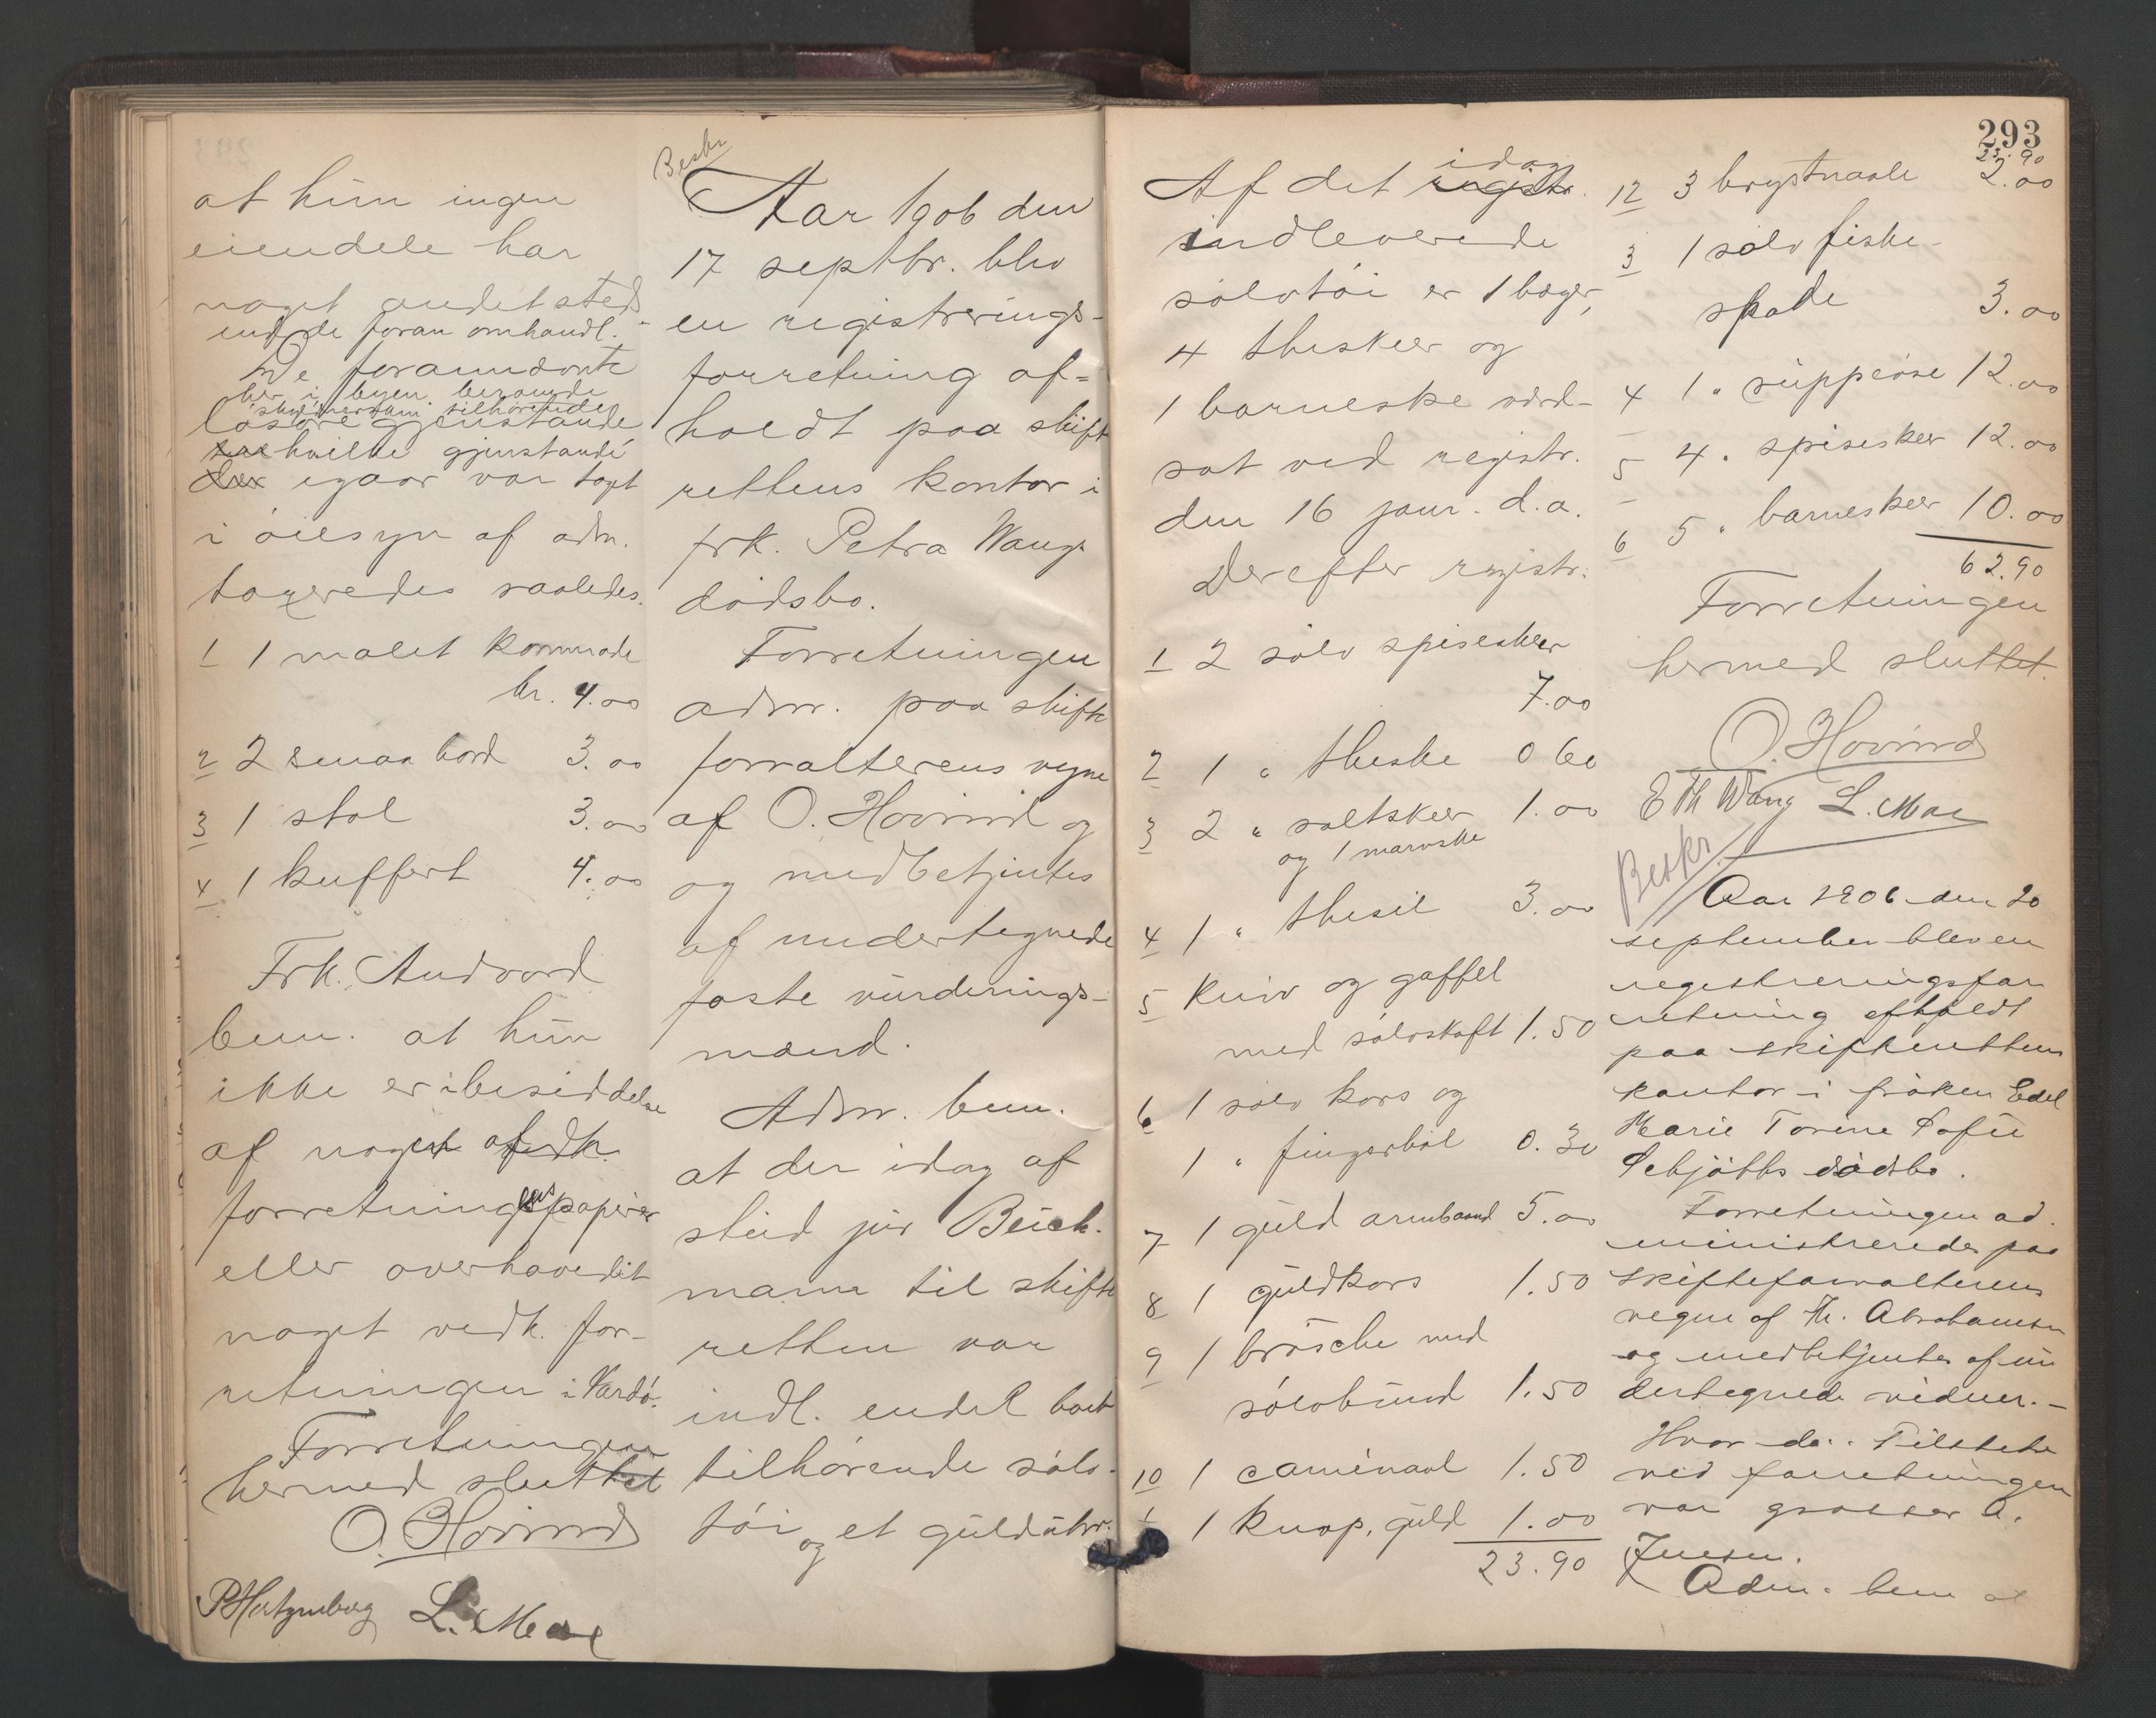 at hun ingen
eiendele har
noget andetsteds
end de foran omhandl.
De forannævnte
her i byen beroende
tilhørende
løsøre gjenstande
hvilke gjenstande
der igaar var tagt
i øiesyn af adm.
taxeredes saaledes.
1 1 malet kommode
kr. 4.00
2 2 smaa bord 3.00
3 1 stol 3.00
4 1 kuffert 4.00
Frk. Andvord
bem. at hun
ikke er i besiddelse
af noget af dk.
forretningspapirer
eller overhovedet
noget vedk. for-
retningen i Vardø.
Forretningen
hermed sluttet
O. Hovind
P Hertzenberg L. Moe
Beskr
Aar 1906 den
17 septbr. blev
en registrerings-
forretning af-
holdt paa skift
rettens kontor i
frk. Petra Wangs
dødsbo.
Forretningen
adm. paa skifte
forvalterens vegne
af O. Hovind og
og medbetjentes
af undertegnede
faste vurderings-
mænd.
Adm. bem.
at der idag af
stud jur Beich-
mann til skifte
retten var
indl. endel boet
tilhørende sølv-
tøi og et gulduhr.
293
Af det idag registr.
indleverede
sølvtøi er 1 bæger,
4 theskeer og
1 barneske værd-
sat ved registr.
den 16 janr. d.a.
Derefter registr.
1 2 sølv spiseskeer
7.00
2 1 " theske 0 60
3 2 " saltskeer 1.00
og 1 marvske
4 1 " thesil 3.00
5 kniv og gaffel
med sølvskaft 1.50
6 1 sølv kors og
1 " fingerbøl 0.30
7 1 guld armbaand 5.00
8 1 guldkors 1.50
9 1 brosche med
sølvbund 1.50
10 1 cameenaal 1.50
1 1 knap, guld 1.00
23.90
23.90
12 3 brystnaale 2.00
3 1 sølv fiske-
spade 3.00
4 1 " suppeøse 12.00
5 4 " spiseskeer 12.00
6 5 " barneskeer 10.00
62.90
Forretningen
hermed sluttet.
O. Hovind
E Th Wang L. Moe
Beskr
Aar 1906 den 20
september blev en
registreringsfor
retning afholdt
paa skifterettens
kontor i frøken Edel
Marie Torine Sofie
Schjøtts dødsbo.
Forretningen ad-
ministreredes paa
skifteforvalterens
vegne af Th. Abrahamsen
og medbetjentes af un
dertegnede vidner. -
Hvor da: Tilstede
ved forretningen
var grosser A.
Jensen.
Adm. bem at